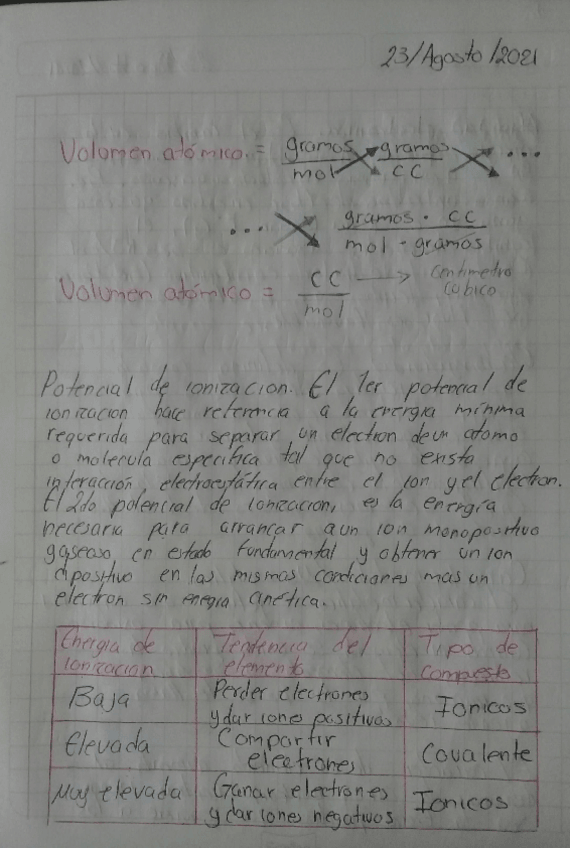 23/Agosto/2021
Volumen atómico = gramos/mol gramos/CC ...
... gramos · CC/mol - gramos
Volumen atómico = CC/mol → Centimetro cubico
Potencial de ionizacion. El 1er potencial de
ionizacion hace referencia a la energia mínima
requerida para separar un electron de un atomo
o molecula especifica tal que no exista
interacción, electroestática entre el ion y el electron.
El 2do potencial de ionizacion, es la energía
necesaria para arrancar a un ion monopositivo
gaseoso, en estado fundamental y obtener un ion
dipositivo en las mismas condiciones mas un
electron sin energia cinética.
Energia de ionizacion Tendencia del elemento Tipo de compuesto
Baja Perder electrones y dar iones positivos Ionicos
Elevada Compartir electrones Covalente
Muy elevada Ganar electrones y dar iones negativos Ionicos